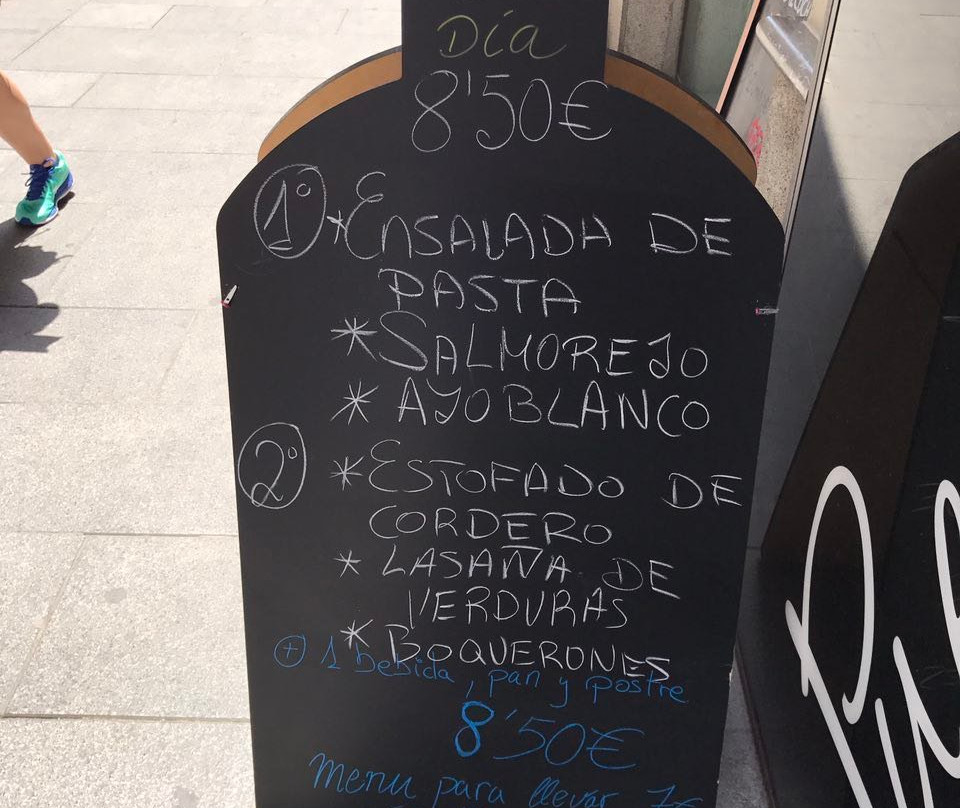 Día
8'50€
1º *Ensalada de
PASTA
* SALMOREJO
* AJO BLANCO
2º * ESTOFADO DE
CORDERO
* LASAÑA DE
VERDURAS
* BOQUERONES
+ 1 bebida, pan y postre
8'50€
Menu para llevar 7€